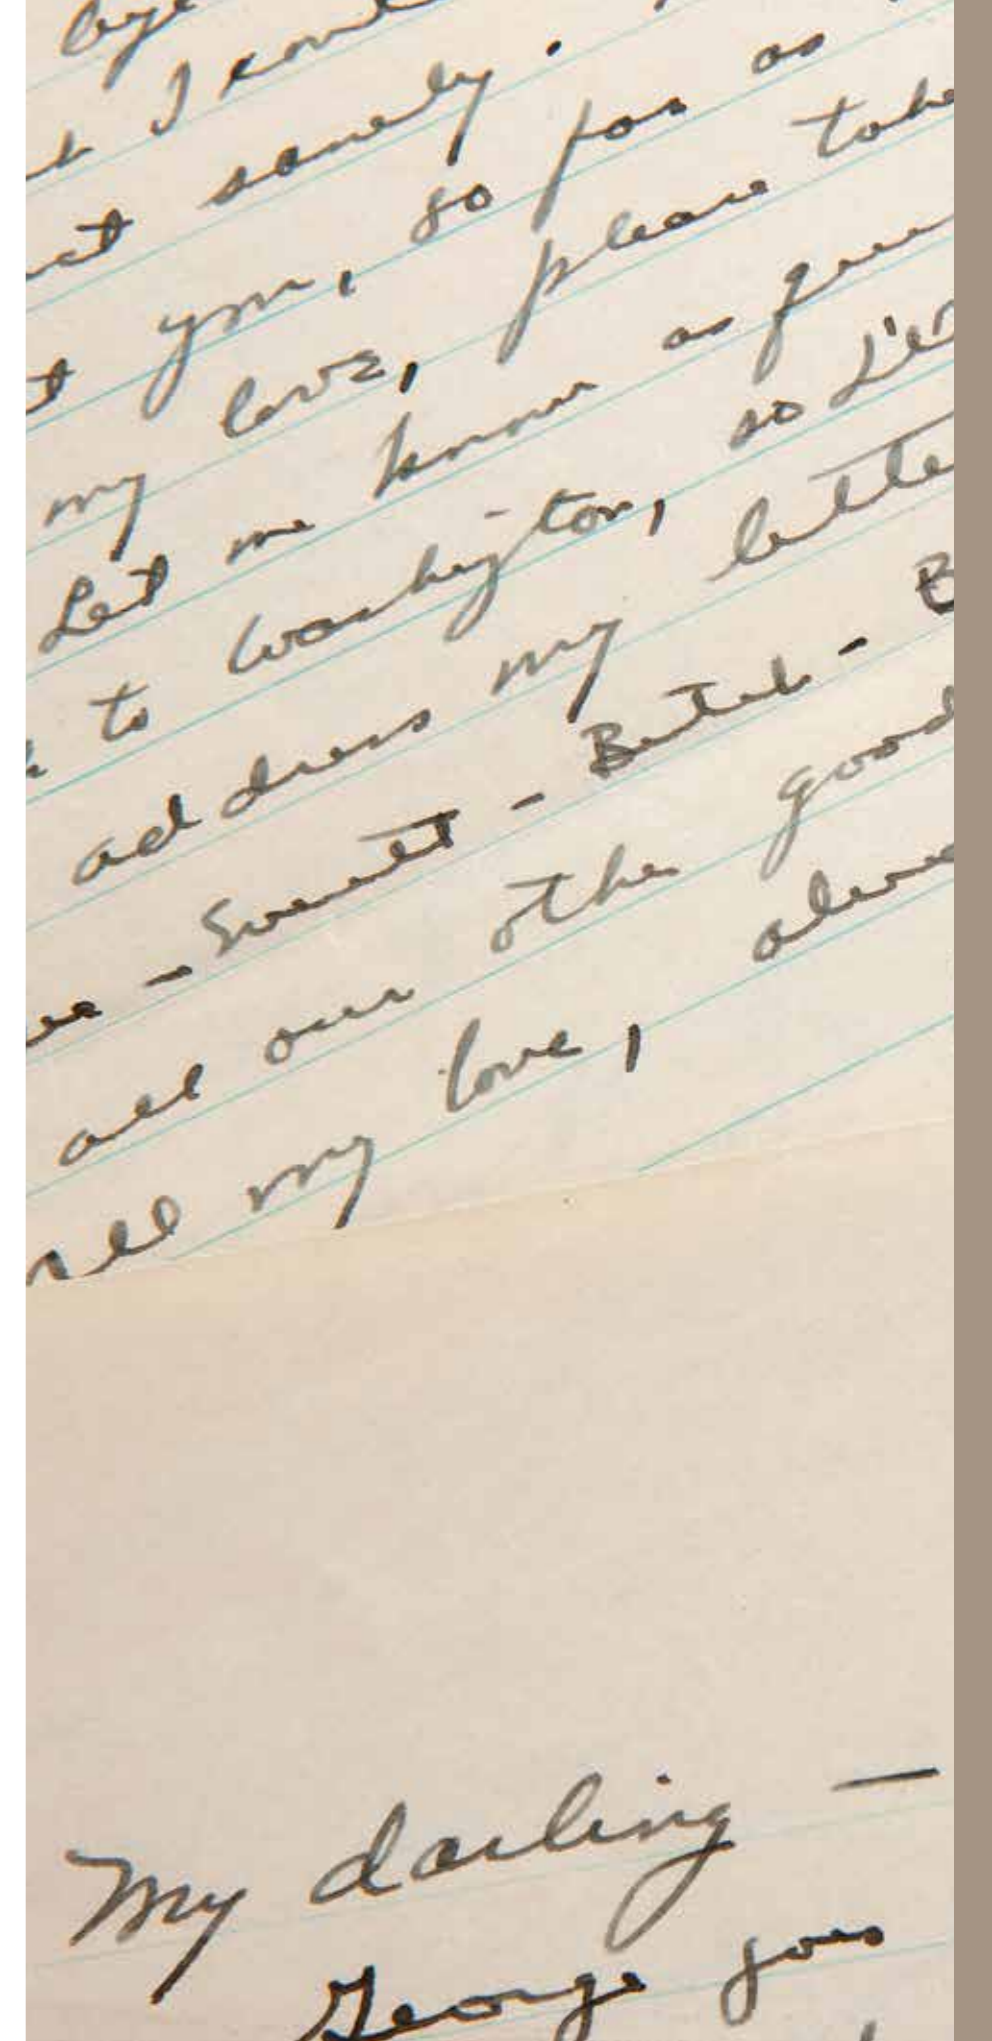 I
sanely.
you, so far as
my love, please take
Let me know as
to Washington, so
address my lette
- Sweet - Butch - B
all our other good
all my love,
My darling —
George goes